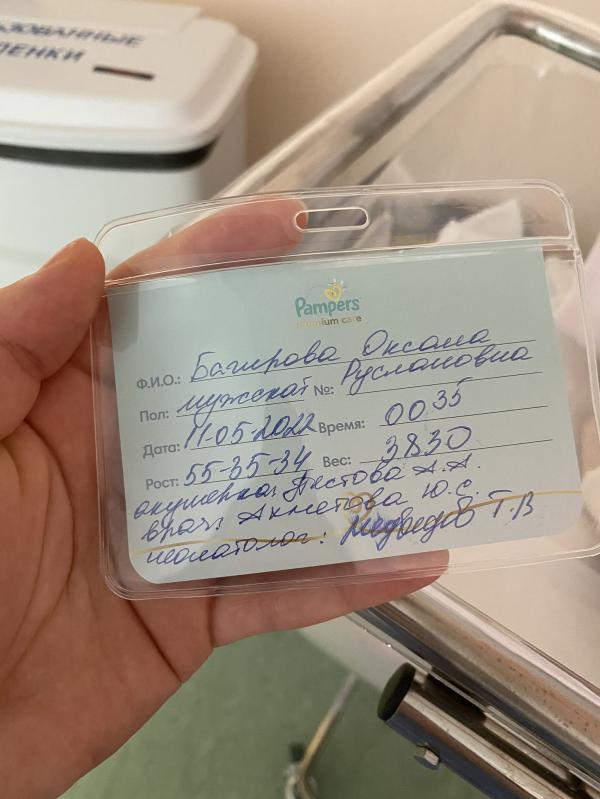 ЗОВАННЫЕ
ЛЕНКИ
Pampers
premium care
Ф.И.О.: Багирова Оксана
Пол: мужская №: Руслановна
Дата: 11-05-2022 Время: 00.35
Рост: 55-35-34 Вес: 3830
акушерка: Пестова А.А.
врач: Ахметова Ю.С.
неонатолог: Медведев Т.В